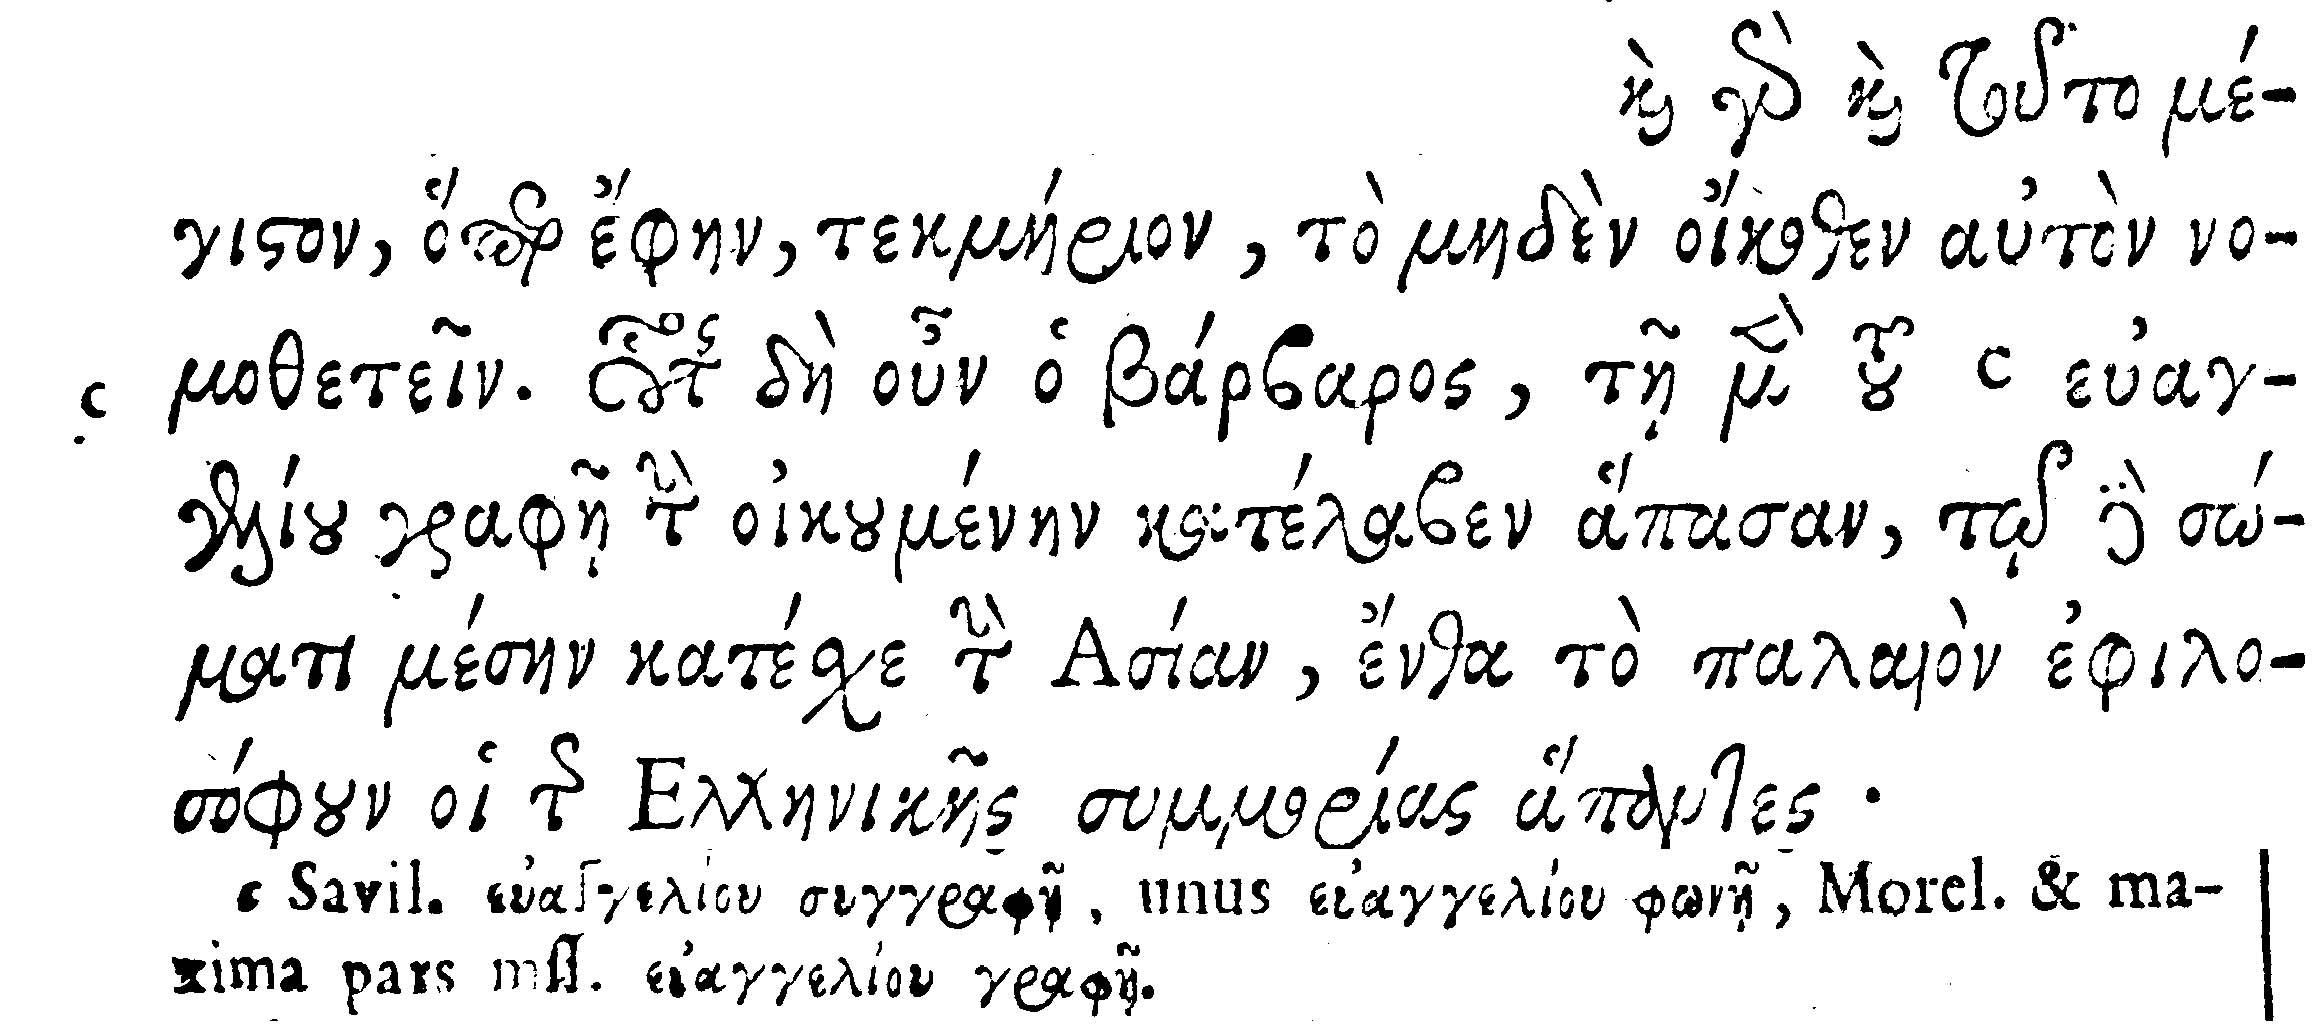 καὶ γὰρ καὶ τοῦτο μέ-
γιστον, ὅπερ ἔφην, τεκμήριον, τὸ μηδὲν οἴκοθεν αὐτὸν νο-
c μοθετεῖν. Οὗτος δὴ οὖν ὁ βάρβαρος, τῇ μὲν τοῦ c εὐαγ-
γελίου γραφῇ τὴν οἰκουμένην κατέλαβεν ἅπασαν, τῷ δὲ σώ-
ματι μέσην κατέσχε τὴν Ασίαν, ἔνθα τὸ παλαιὸν ἐφιλο-
σόφουν οἱ τῆς Ελληνικῆς συμμορίας ἅπαντες.
c Savil. εὐαγγελίου συγγραφῇ, unus εὐαγγελίου φωνῇ, Morel. & ma-
xima pars mss. εὐαγγελίου γραφῇ.